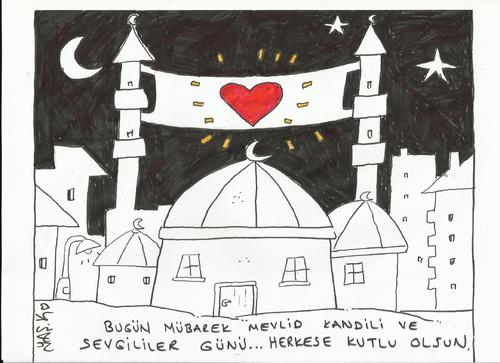 BUGÜN MÜBAREK MEVLİD KANDİLİ VE
SEVGİLİLER GÜNÜ... HERKESE KUTLU OLSUN.